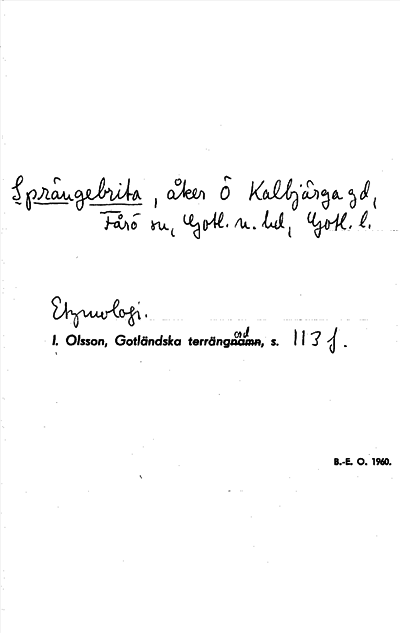 Sprängebrita, åker Ö Kalbjärga gd,
Fårö sn, Gotl. n. hd, Gotl. l.
Etymologi.
I. Olsson, Gotländska terrängnamn, s. 113 f.
ord
B.-E. O. 1960.